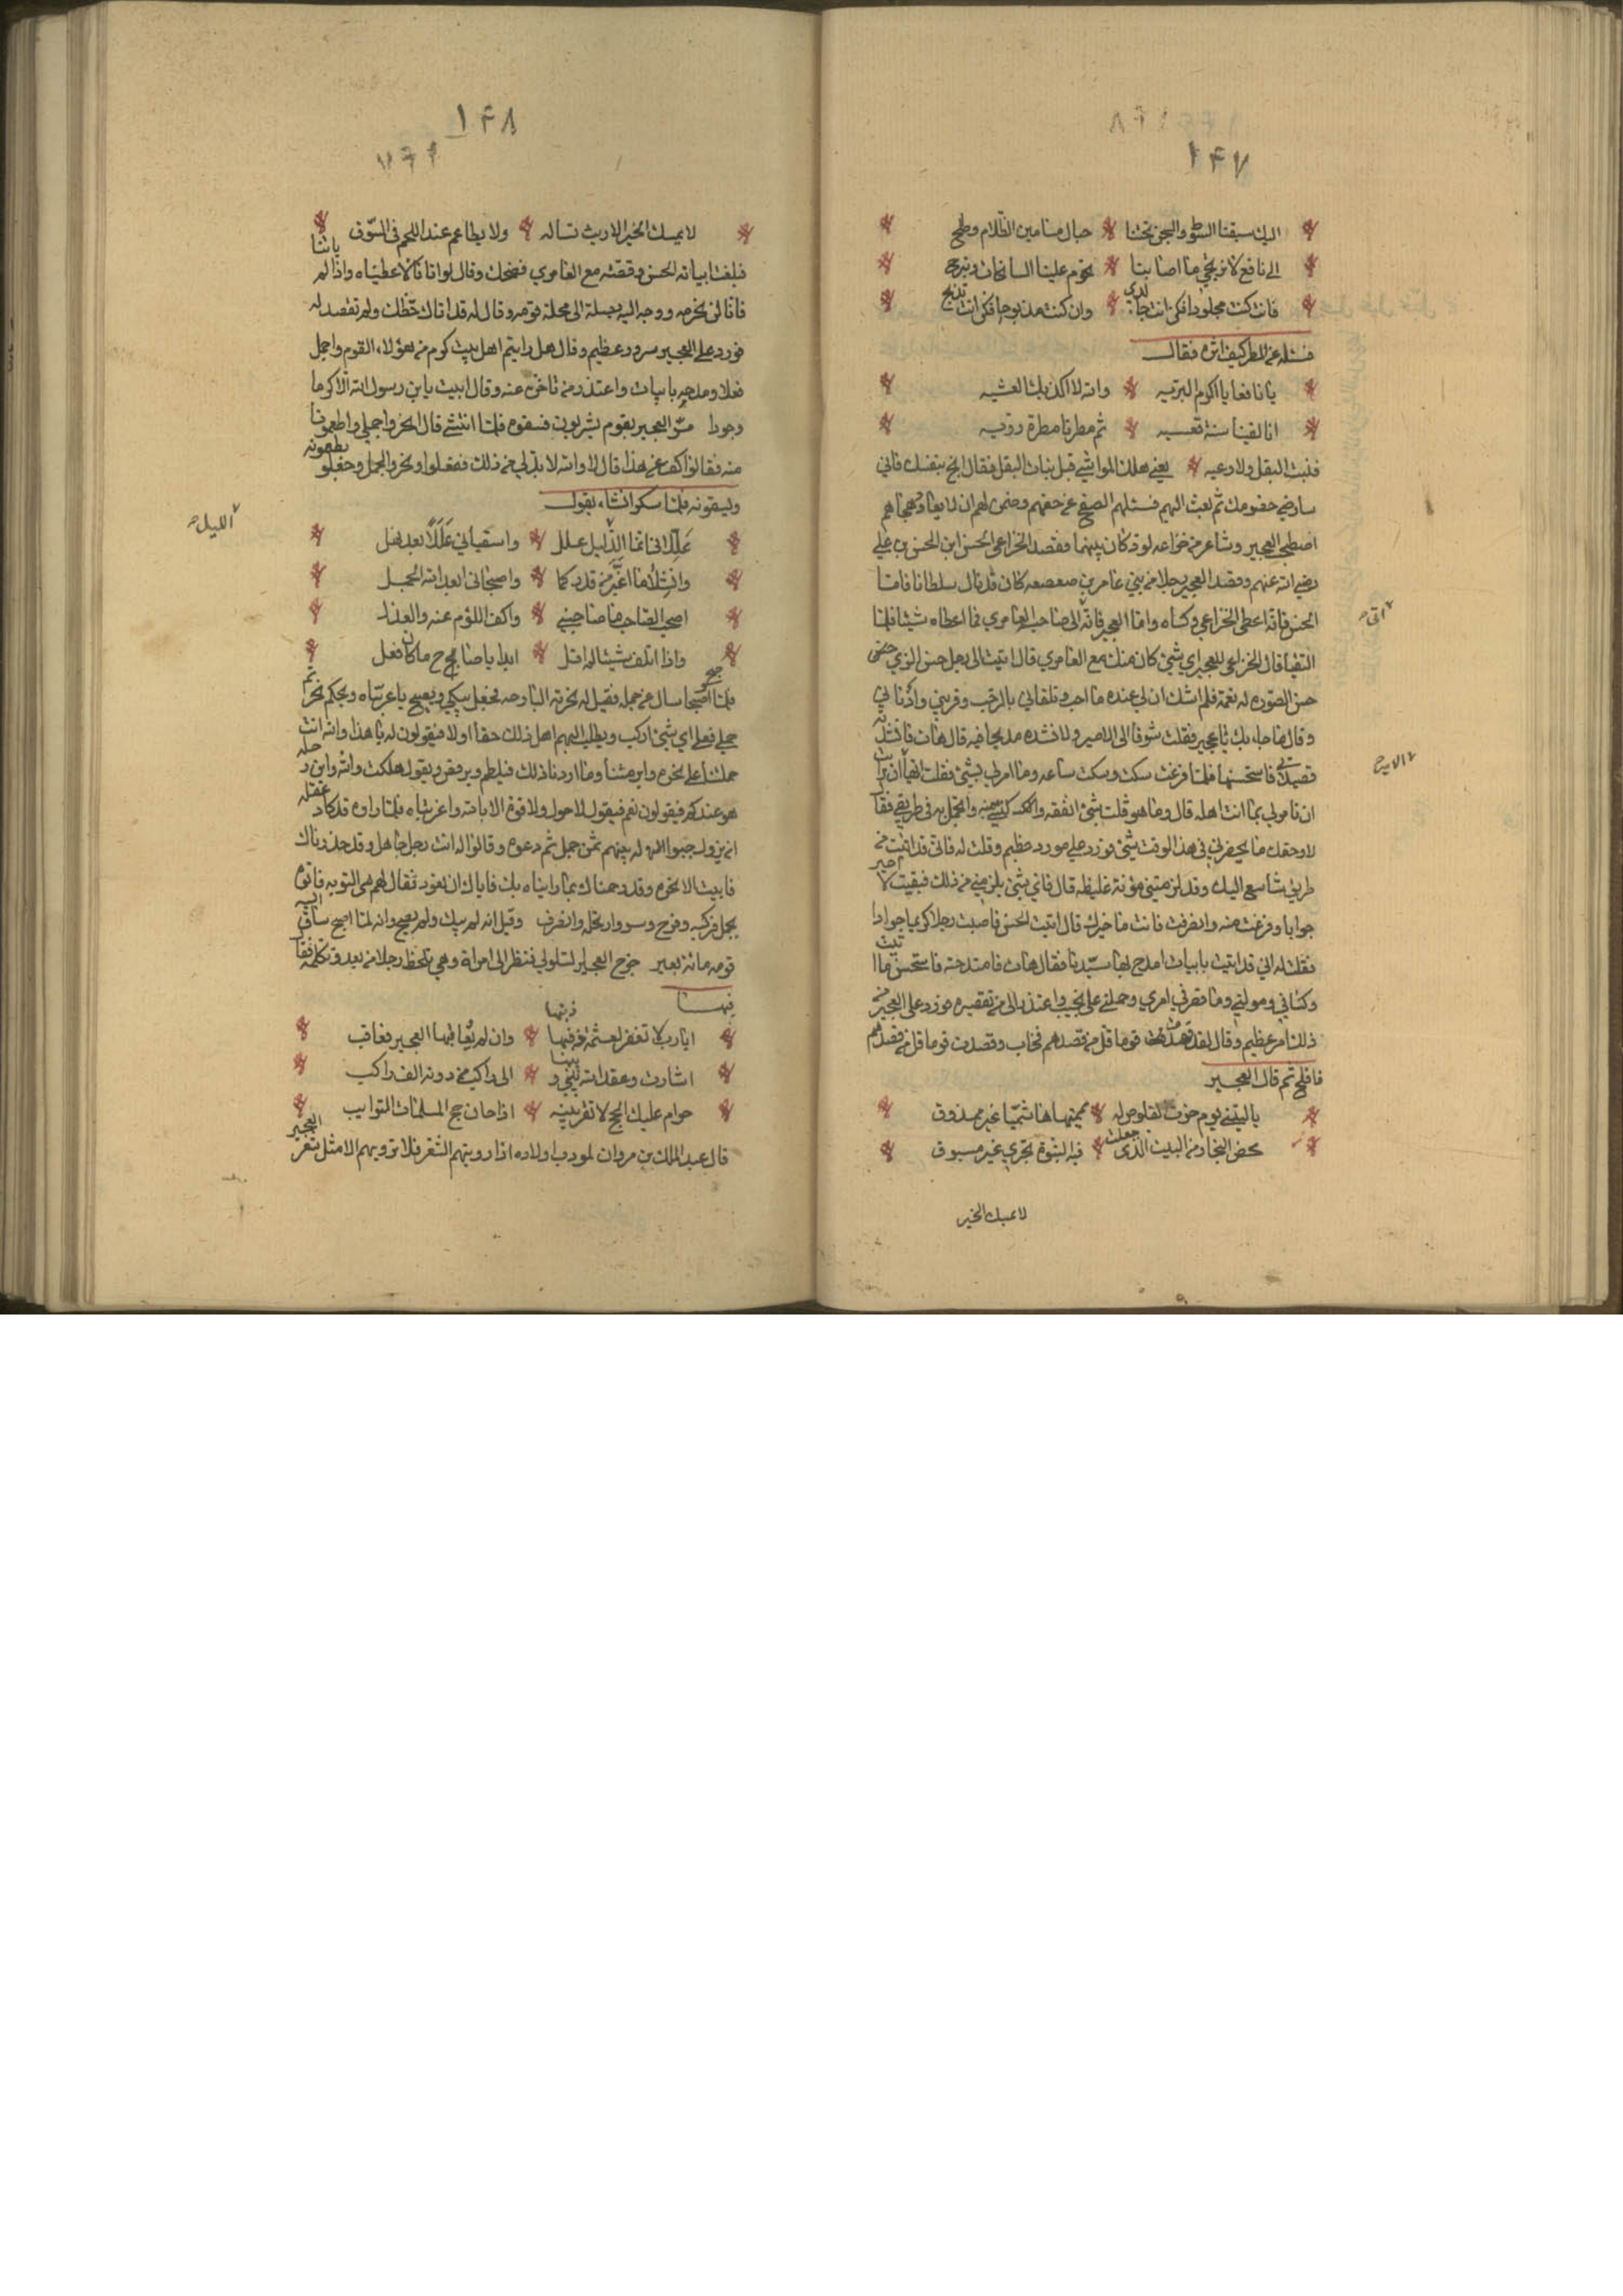 ١٤٧
اليك سبقنا السوط والسجن تحتنا حبال منا مين الظلام وطح
الى نافع لا نرتجى ما اصابنا تحوم علينا السانحات وتبرح
فان كنت مجلودا فكن انت جالدى وان كنت مذبوحا فكن انت تذبح
فسئله عن المطر كيف اثره فقال
يا نافعا يا اكرم البريه والله لا اكذبك العشيه
انا لقينا سنة قسيه ثم مطرنا مطرة رويه
فنبت البقل ولا رعيه يعنى هلك المواشى قبل نبات البقل فقال انج بنفسك فانى
سارضى خصومك ثم بعث اليهم فسئلهم الصفح عن حقهم وضمن لهم ان لا يعاود هجاهم
اصطحب العجير وشاعر من خزاعه لود كان بينهما فقصد الخزاعى الحسن ابن الحسن بن على
رضى الله عنهم وقصد العجير رجلا من بنى عامر بن صعصعه كان قد نال سلطانا فاما
الحسن فانه اعطى الخزاعى وكساه واما العجير فانه الى صاحب العامرى فما اعطاه شيئا فلما
اتى
التقيا قال الخزاعى للعجير اى شئ كان منك مع العامرى قال اتيت الى رجل حسن الزى
حسن الصوره له نعمة فلم اشك ان لى عنده ما احب وتلقانى بالرحب وقربنى وادنانى
وقال ما جاء بك يا عجير فقلت شوقا الى الامير ولانشده مديحا فيه قال هات فانشدته
قصيدتى فاستحسنها فلما فرغت سكت وسكت ساعه وما امر لى بشئ فقلت ايها
الامير
ان تامر لى بما انت اهله قال وما هو قلت بشئ انفقه واتجمل به فى طريقى فقال
لا وحقك ما يحضرنى فى هذا الوقت شئ فورد على مورد عظيم وقلت له فانى قد اتيت من
طريق شاسع اليك وقد لزمتنى مؤنة غليظه قال فاى شئ يلزمنى من ذلك فبقيت لا احير
جوابا وفرغت منه وانصرفت فانت ما خبرك قال اتيت الحسن فاصبت رجلا كريما جوادا
فقلت له انى قد اتيت بابيات امدح بها سيدنا فقال هات فامتدحته فاستحسن ما اتيت
وكسانى ومولنى وما قصر فى امرى وحملنى على نجيب واعتذر الى من تقصيره فورد على العجير من
ذلك امر عظيم وقال لقد قصدت قوما قل من قصدهم فخاب وقصدت قوما قل من قصدهم
فافلح ثم قال العجير
يا ليتنى يوم حزت القلوص له يممتها هاشميا غير ممذوق
محض النجار من البيت الذى جعلت فيه النبوة تجرى غير مسبوق
لا يمسك الخير
١٤٨
لا يمسك الخير الا ريث تساله ولا يطاعم عند اللحم فى السوق
فبلغت ابياته الحسن وقصته مع العامرى فضحك وقال لو اتانا لاعطيناه واذا لم ياتنا
فانا لن نحرمه ووجه اليه بصلة الى محلة قومه وقال له قد اتاك حظك ولم تقصد له
فورد على العجير سرور عظيم وقال هل رايتم اهل بيت كرم من هؤلاء القوم واجمل
فعلا ومدحهم بابيات واعتذر من تاخره عنه وقال ابيت يا بن رسول الله الا كرما
وجودا مر العجير بقوم يشربون فسقوه فلما انتشى قال انحروا جملى واطعمونا
منه فقالوا اكف عن هذا قال لا والله لا بد لى من ذلك ففعلوا ونحروا الجمل وجعلوا يطعمونه
ويسقونه فلما سكر انشاء يقول
عللانى انما الذليل علل واسقيانى عللا بعد نهل
الليل
وانشلا ما اغبر من قدريكما واصبحانى ابعد الله الجمل
اصحب الصاحب ما صاحبنى واكف اللؤم عنه والعذل
واذا اتلف شيئا لم اقل ابدا يا صاح ما كان فعل
فلما اصبح سال عن جمله فقيل له نحرته البارحه فجعل يبكى ويصيح يا غربتاه ويحكم نحرتم
جملى فعلى اى شئ اركب ويطلب اليهم اهل ذلك حقا اولا فيقولون له يا هذا والله انت
حملتنا على نحره وابرمتنا وما اردنا ذلك فيلطم ويزعق ويقول هلكت والله واين رحله
هو عندكم فيقولون نعم فيقول لا حول ولا قوة الا بالله واغربتاه فلما راوه قد كاد عقله
ان يزول جبوا له بينهم ثمن جمل ثم دعوه وقالوا له انت رجل جاهل وقد حذرناك
فابيت الا نحره وقد رحمناك بما راينا بك فاياك ان تعود فقال لهم هى التوبه فاتوه
بجمل فركبه وفرح وسروا رحله وانصرف وقيل انه لم يبك ولم يصيح وانه لما اصبح ساق اليه
قومه مائة بعير خرج العجير السلولى فنظر الى امراة وهى تلحظ رجلا من بعيد وتكلمه فقال
فيهما
ايا رب لا تغفر لعثمة ذنبها وان لم يعاقبها العجير فعاقب
اشارت وعقد الله بينى وبينها الى راكب من دونه الف راكب
حرام عليك الحج لا تقربينه اذا حان حج المسلمات التوايب
قال عبد الملك بن مروان لمودب اولاده اذا رويتهم الشعر فلا تروهم الا مثل شعر العجير